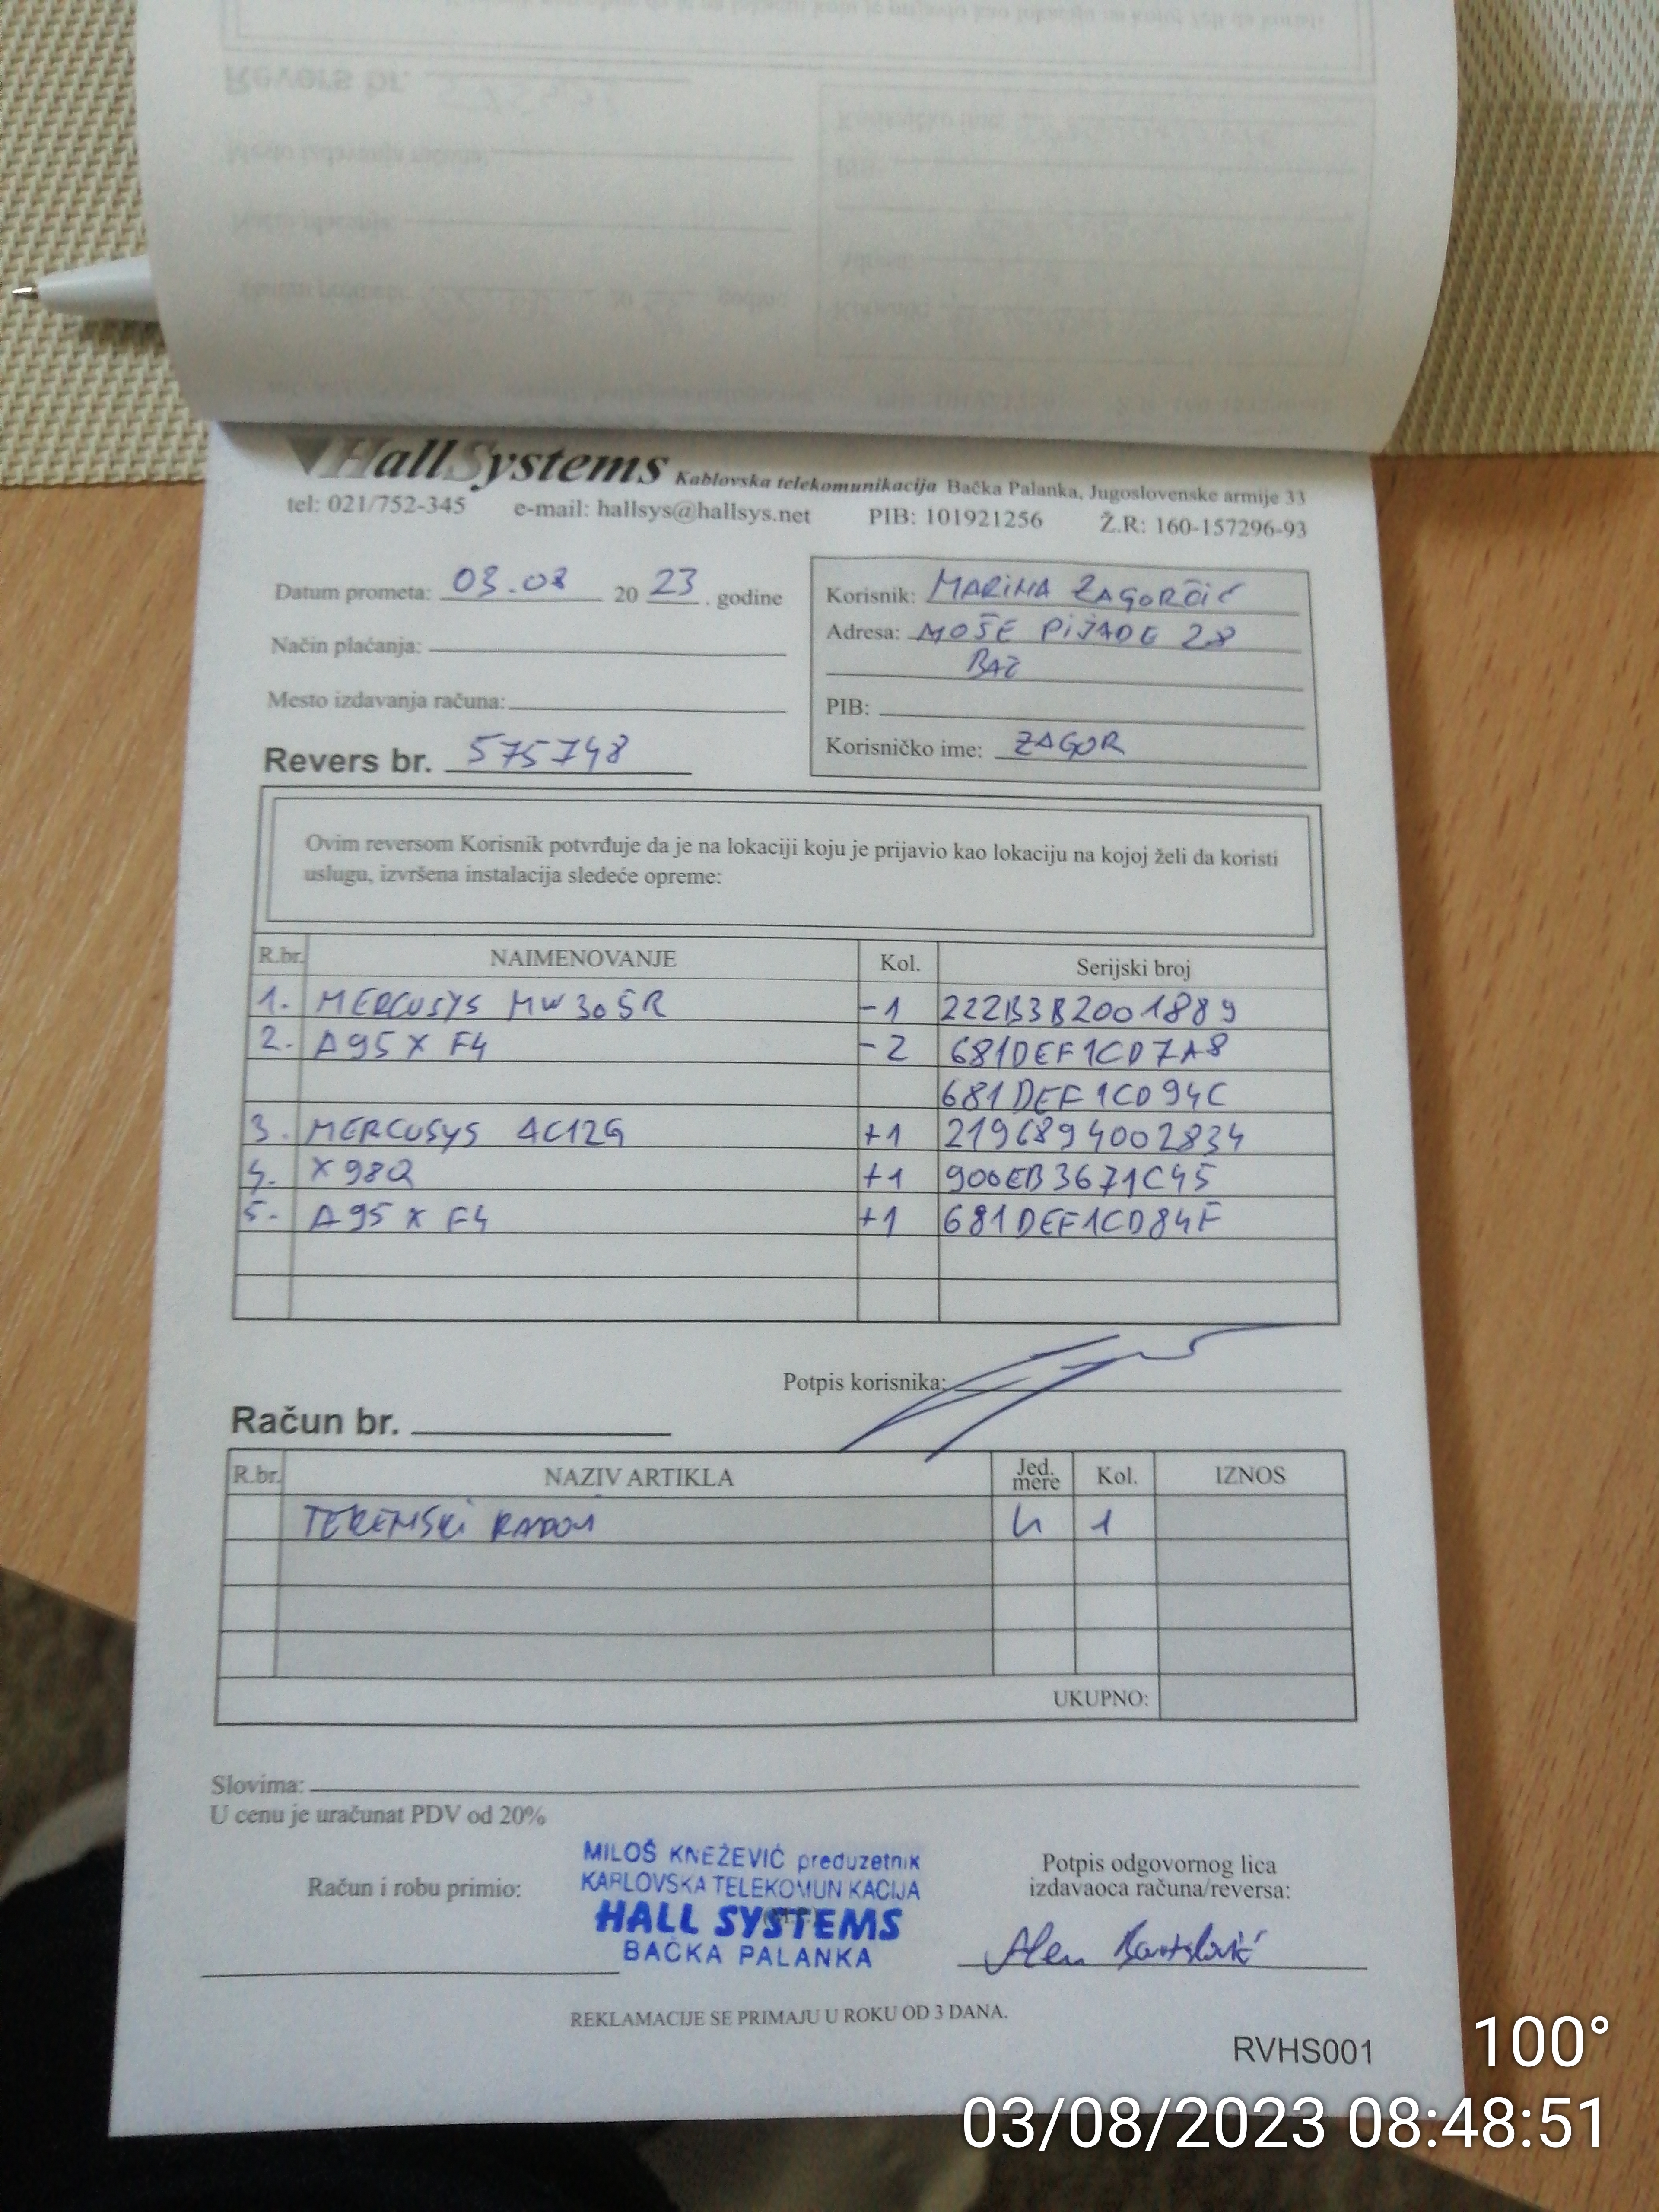 HallSystems Kablovska telekomunikacija Bačka Palanka, Jugoslovenske armije 33
tel: 021/752-345 e-mail: hallsys@hallsys.net PIB: 101921256 Ž.R: 160-157296-93
Datum prometa: 03.08 20 23 . godine
Način plaćanja:
Mesto izdavanja računa:
Revers br. 575748
Korisnik: MARINA ZAGORČIĆ
Adresa: MOŠE PIJADE 28
BAČ
PIB:
Korisničko ime: ZAGOR
Ovim reversom Korisnik potvrđuje da je na lokaciji koju je prijavio kao lokaciju na kojoj želi da koristi
uslugu, izvršena instalacija sledeće opreme:
R.br. NAIMENOVANJE Kol. Serijski broj
1. MERCUSYS MW305R -1 222B3B2001889
2. A95X F4 -2 681DEF1CD7A8
681DEF1CD94C
3. MERCUSYS AC12G +1 2196894002834
4. X98Q +1 900EB3671C45
5. A95X F4 +1 681DEF1CD84F
Potpis korisnika:
Račun br.
R.br. NAZIV ARTIKLA Jed. mere Kol. IZNOS
TERENSKI RADOVI h 1
UKUPNO:
Slovima:
U cenu je uračunat PDV od 20%
Račun i robu primio:
MILOŠ KNEŽEVIĆ preduzetnik
KABLOVSKA TELEKOMUNIKACIJA
HALL SYSTEMS
BAČKA PALANKA
Potpis odgovornog lica
izdavaoca računa/reversa:
Alen
REKLAMACIJE SE PRIMAJU U ROKU OD 3 DANA.
RVHS001
100°
03/08/2023 08:48:51